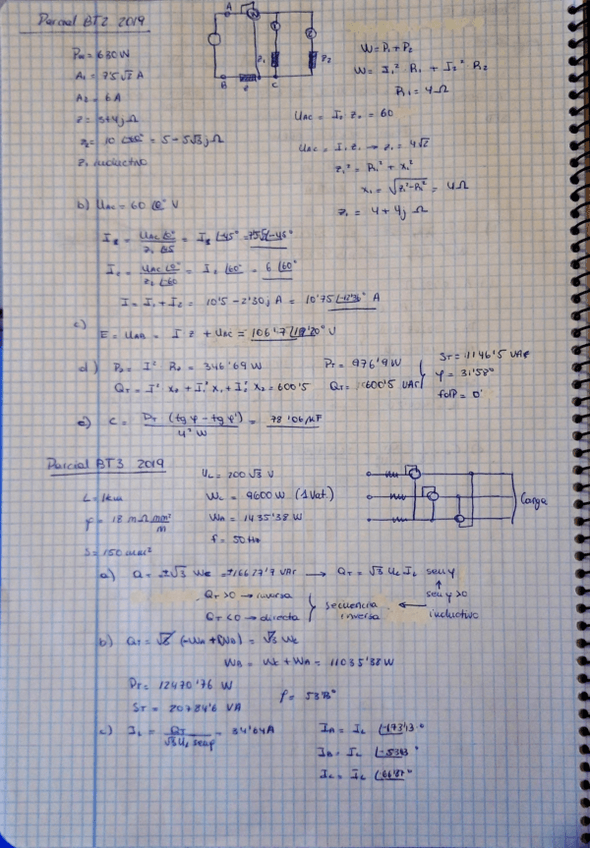 Parcial BT2 2019
A
P₁
P₂
B
Z
C
Pw = 630W
A₁ = 7'5√2 A
A₂ = 6A
z = 3+4j Ω
z₂ = 10 ∠-60° = 5 - 5√3j Ω
z₁ inductivo
W = P₁ + P₂
W = I₁² R₁ + I₂² R₂
R₁ = 4Ω
UAC = I₂ z₂ = 60
UAC = I₁ z₁ → z₁ = 4√2
z₁² = R₁² + x₁²
x₁ = √z₁²-R₁² = 4Ω
z₁ = 4 + 4j Ω
b) UAC = 60 ∠0° V
UAC ∠0°
z₁ ∠45
= 7'5√2 ∠-45°
UAC ∠0°
z₂ ∠-60
= I₂ ∠60° = 6 ∠60°
I = I₁ + I₂ = 10'5 - 2'30j A = 10'75 ∠-12'36° A
c)
E = UAB = I z + UAC = 106'7 ∠19'20° V
d) I² = 346'69 W
PT = 976'9W
QT = I² x + I₁² x₁ + I₂² x₂ = 600'5
QT = 600'5 VAr
ST = 1146'5 VAr
φ = 31'58°
fdp = 0'
e) C = PT (tg φ - tg φ') = 78'06 μF
U² W
Parcial BT3 2019
L = 1km
ρ = 18 mΩ mm²
m
S = 150 mm²
UL = 200√3 V
Wc = 9600W (1Vat.)
WA = 1435'38W
f = 50Hz
Carga
a) Q = ±√3 Wc = ±16627'7 VAr → QT = √3 UL IL senφ
QT >0 → inversa
QT <0 → directa
secuencia
inversa
senφ >0
inductivo
b) QT = √3 (-WA + WB) = √3 Wc
WB = Wc + WA = 11035'38W
PT = 12470'76 W
ST = 20784'6 VA
φ = 53'13°
c) IL = QT = 34'64A
√3 UL senφ
IA = IL
IB = IL
IC = IL